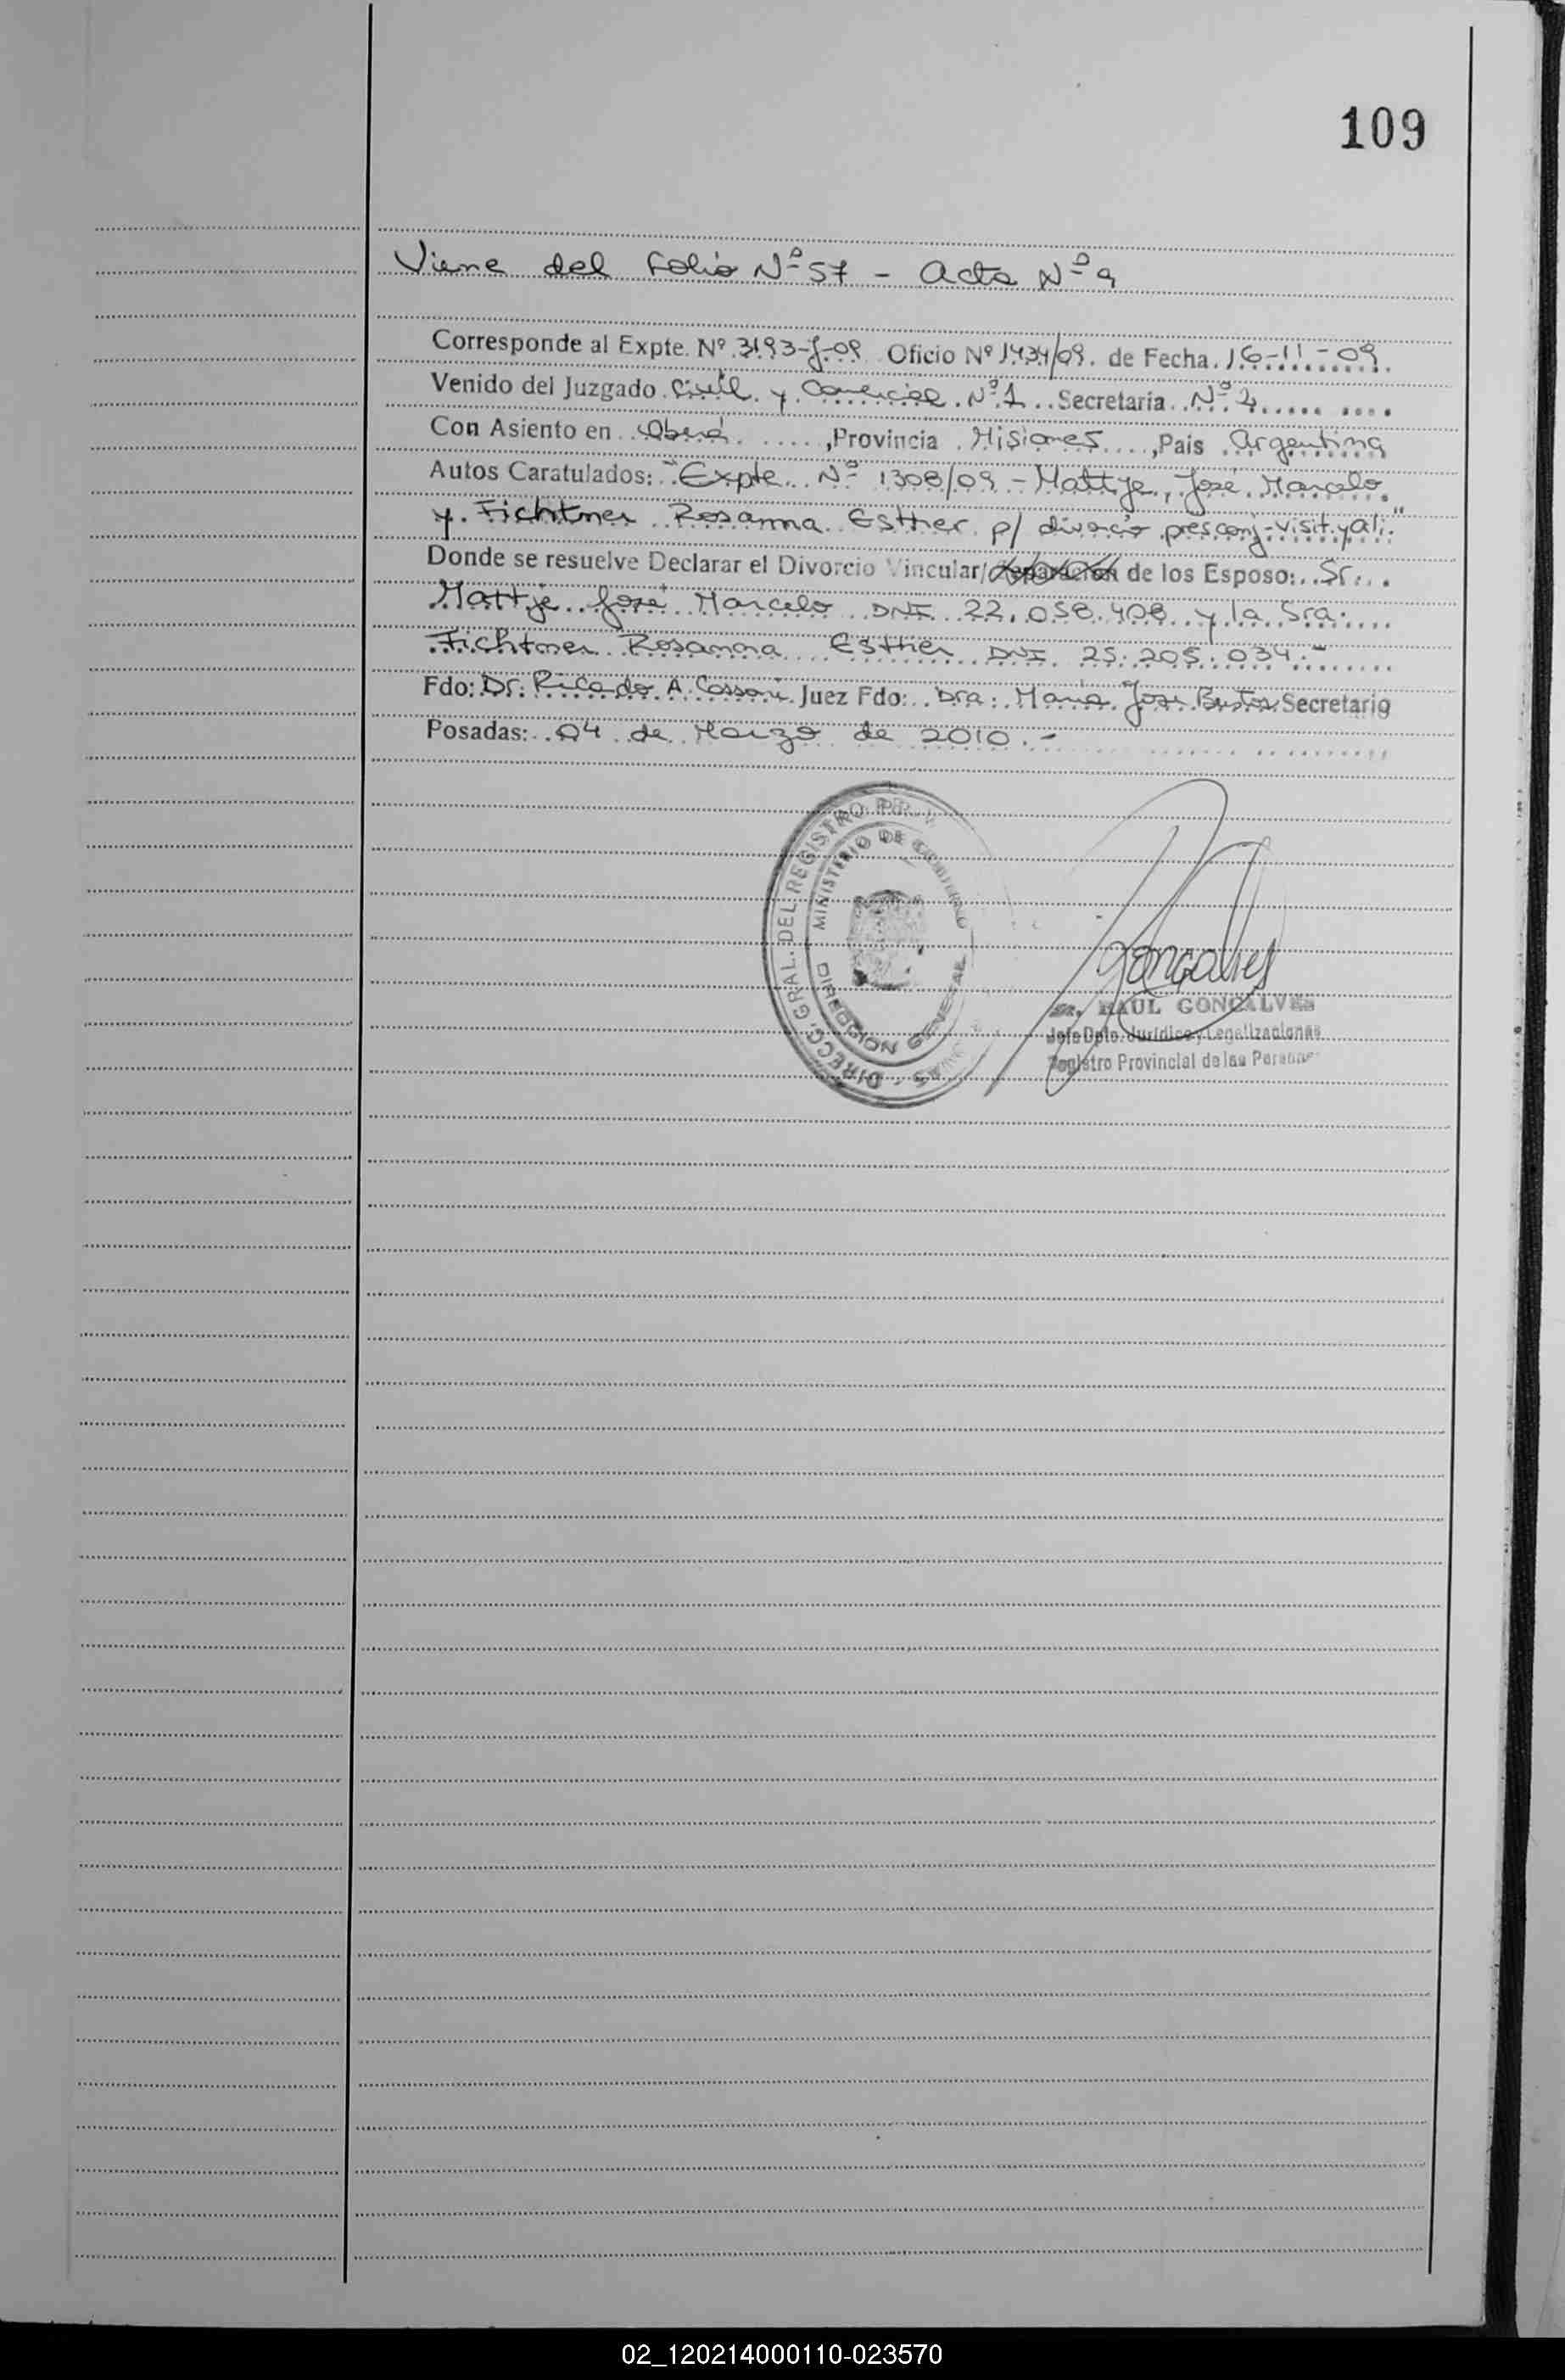 109
Viene del Folio Nº 57 - Acta Nº 9
Corresponde al Expte. Nº 3193-J-09 Oficio Nº 1434/09. de Fecha 16-11-09
Venido del Juzgado Civil y Comercial Nº 1 Secretaria Nº 2
Con Asiento en Oberá, Provincia Misiones, País Argentina
Autos Caratulados: "Expte Nº 1308/09 - Mattje, José Marcelo
y Fichtner Rosanna Esther p/ divorcio pres.conj-visit.y ali."
Donde se resuelve Declarar el Divorcio Vincular/Separación de los Esposo: Sr.
Mattje José Marcelo DNI 22.058.408 y la Sra.
Fichtner Rosanna Esther DNI 25.205.034.-
Fdo: Dr. Ricardo A. Cassoni Juez Fdo: Dra: María José Bustos Secretario
Posadas: 04 de Marzo de 2010.-
DIRECC. GRAL. DEL REGISTRO
MINISTERIO DE GOBIERNO
DIRECCION GENERAL
Gonçalves
Sr. RAUL GONÇALVES
Jefe Dpto. Jurídico y Legalizaciones
Registro Provincial de las Personas
02_120214000110-023570